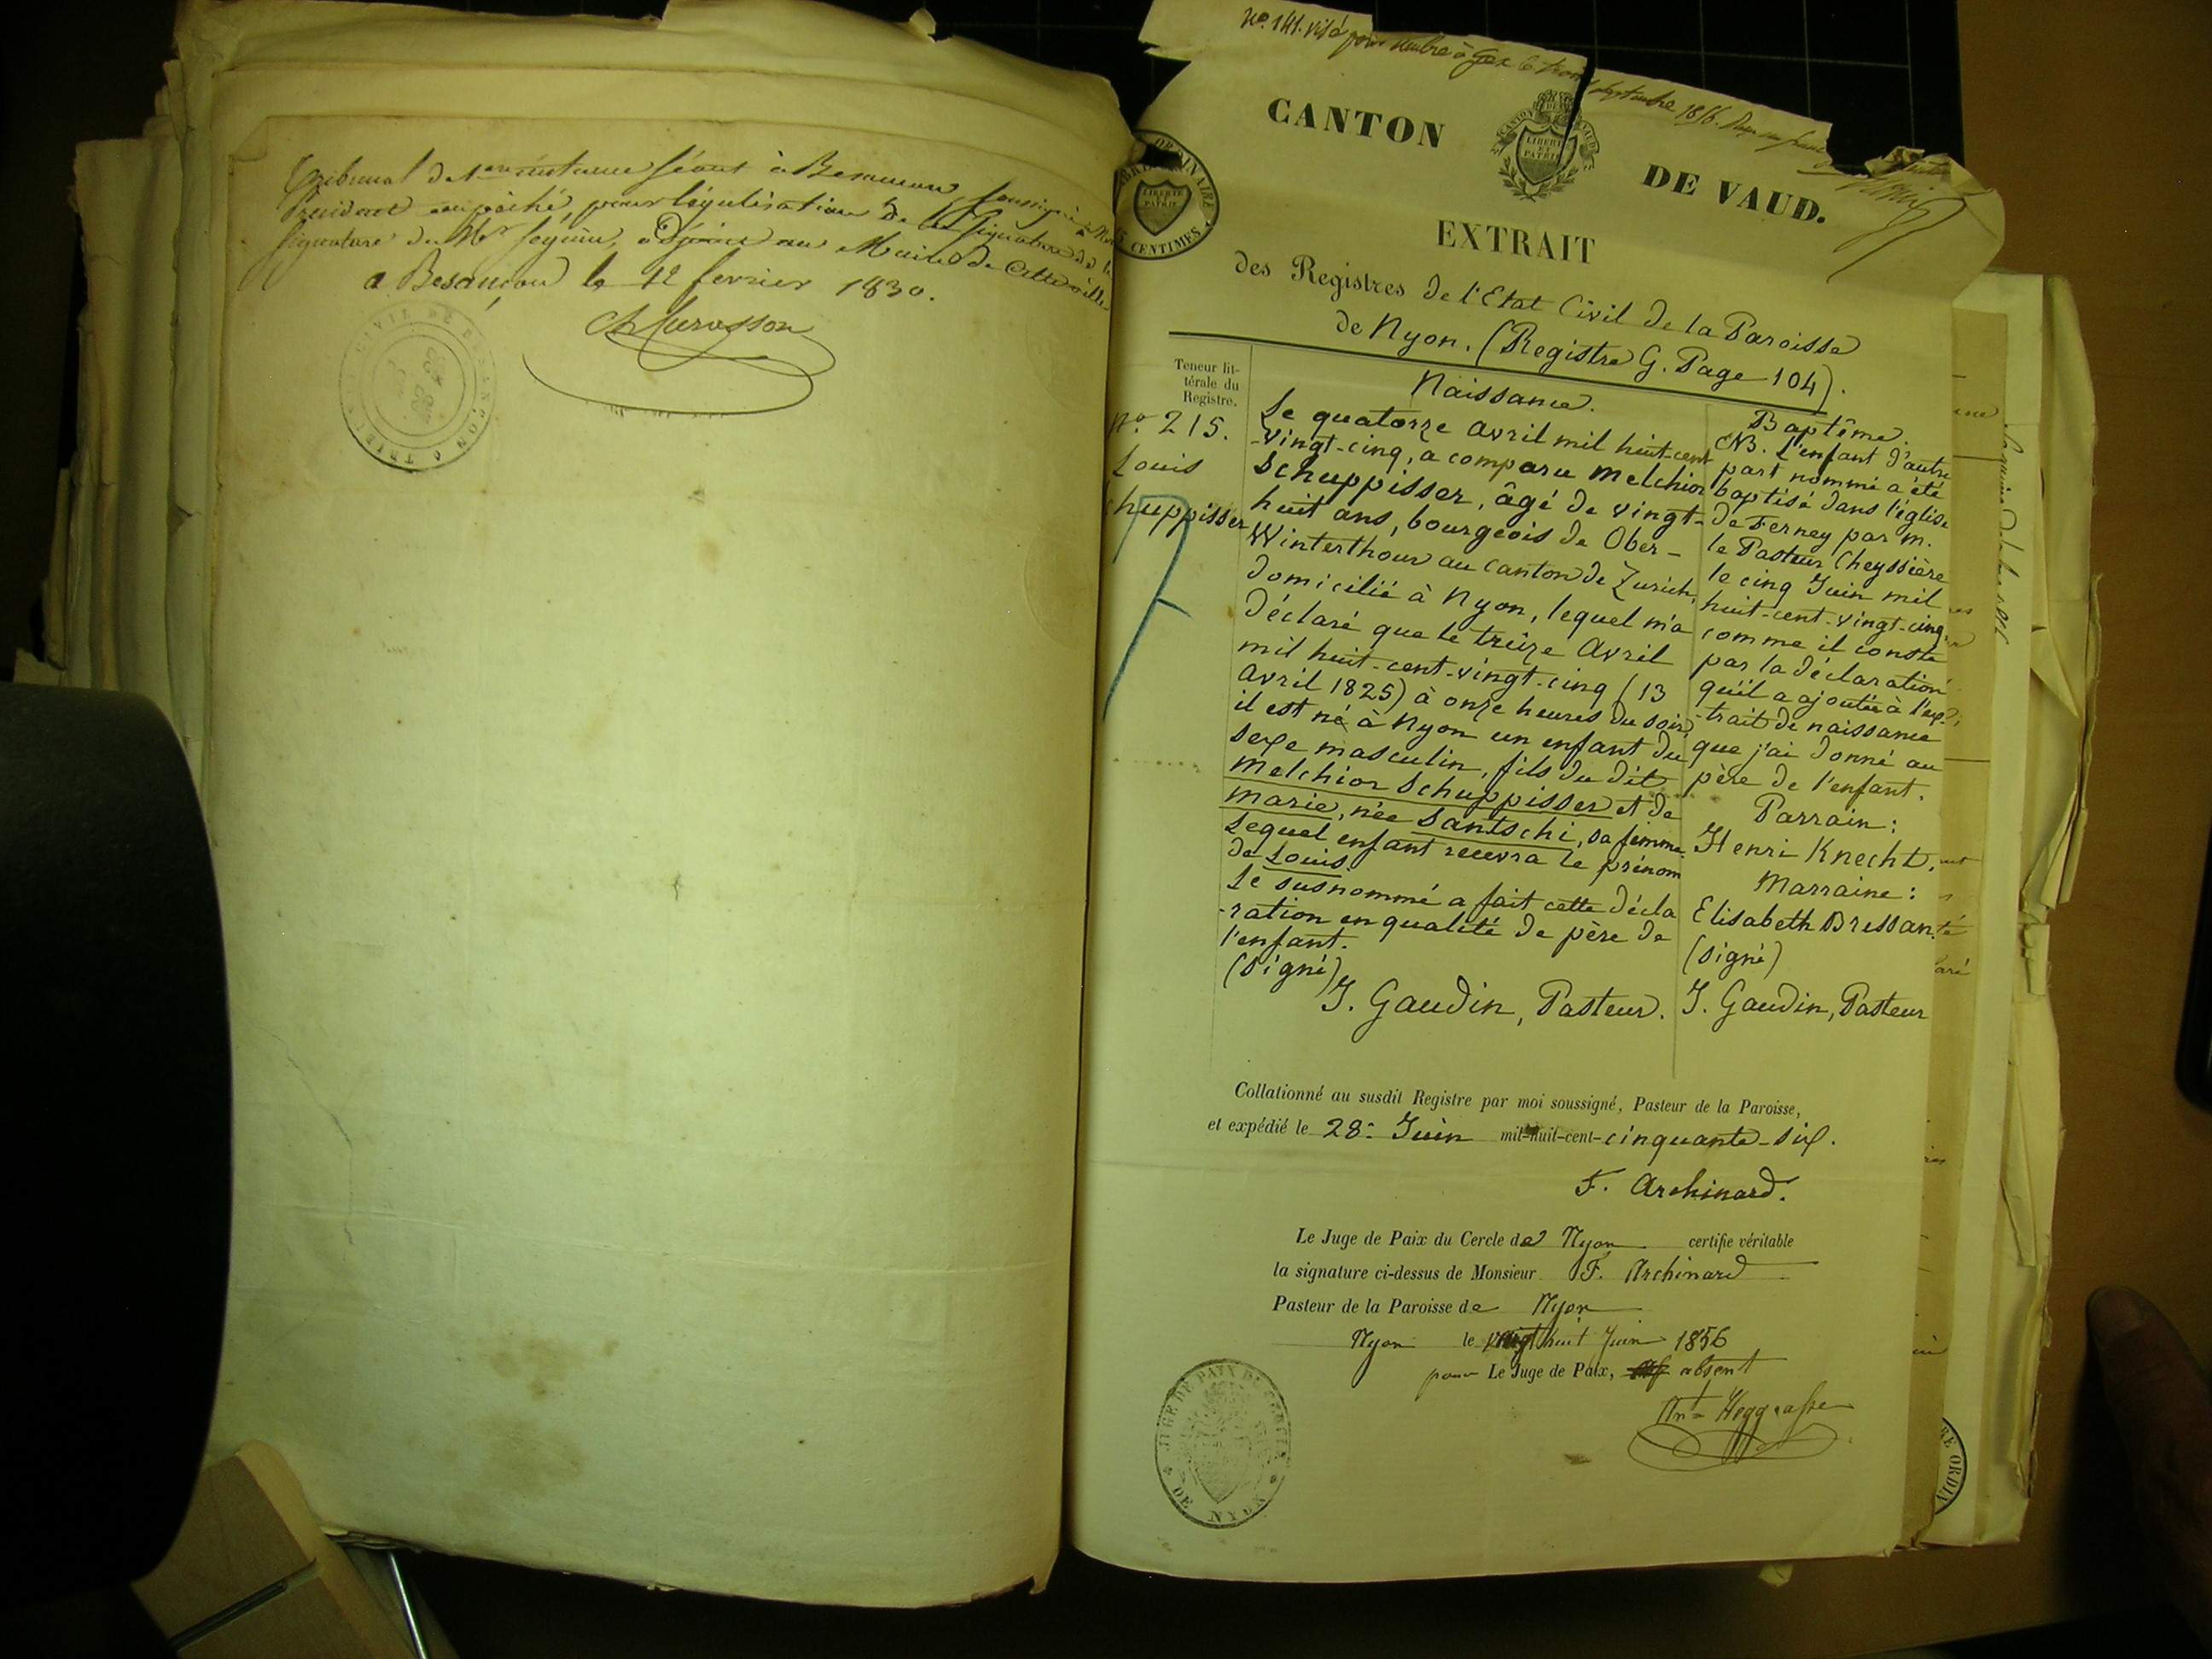 Tribunal de 1ere instance séant à Besançon, soussigné à
Président empêché, pour légalisation de la Signature de
Signature du Mr Seguin, adjoint au Maire de Cette ville
a Besançon le 12 fevrier 1830.
No. 141. visé pour timbre à Gex le trois septembre 1856.
CANTON DE VAUD.
LIBERTÉ ET PATRIE
CENTIMES
EXTRAIT
des Registres de l'Etat Civil de la Paroisse
de Nyon. (Registre G. Page 104).
Teneur lit-
térale du
Registre.
No. 215.
Louis
chuppisser
Naissance.
Le quatorze avril mil huit-cent
-vingt-cinq, a comparu Melchior
Schuppisser, âgé de vingt-
huit ans, bourgeois de Ober-
Winterthour au canton de Zurich,
domicilié à Nyon, lequel m'a
déclaré que le treize Avril
mil huit-cent-vingt-cinq (13
avril 1825) à onze heures du soir,
il est né à Nyon un enfant du
sexe masculin, fils du dit
Melchior Schuppisser et de
Marie, née Santschi, sa femme.
Lequel enfant recevra le prénom
de Louis.
Le susnommé a fait cette décla
-ration en qualité de père de
l'enfant.
(signé)
J. Gaudin, Pasteur.
Baptême.
NB. L'enfant d'autre
part nommé a été
baptisé dans l'église
de Ferney par M.
le Pasteur Cheyssière
le cinq Juin mil
huit-cent-vingt-cinq,
comme il conste
par la déclaration
qu'il a ajoutée à l'ex-
-trait de naissance
que j'ai donné au
père de l'enfant.
Parrain:
Henri Knecht.
Marraine:
Elisabeth Bressan.
(signé)
J. Gaudin, Pasteur
Collationné au susdit Registre par moi soussigné, Pasteur de la Paroisse,
et expédié le 28e Juin mil-huit-cent-cinquante-six.
F. Archinard.
Le Juge de Paix du Cercle de Nyon certifie véritable
la signature ci-dessus de Monsieur F. Archinard
Pasteur de la Paroisse de Nyon
Nyon le vingt huit Juin 1856
pour Le Juge de Paix, absent
JUGE DE PAIX DU CERCLE
DE NYON